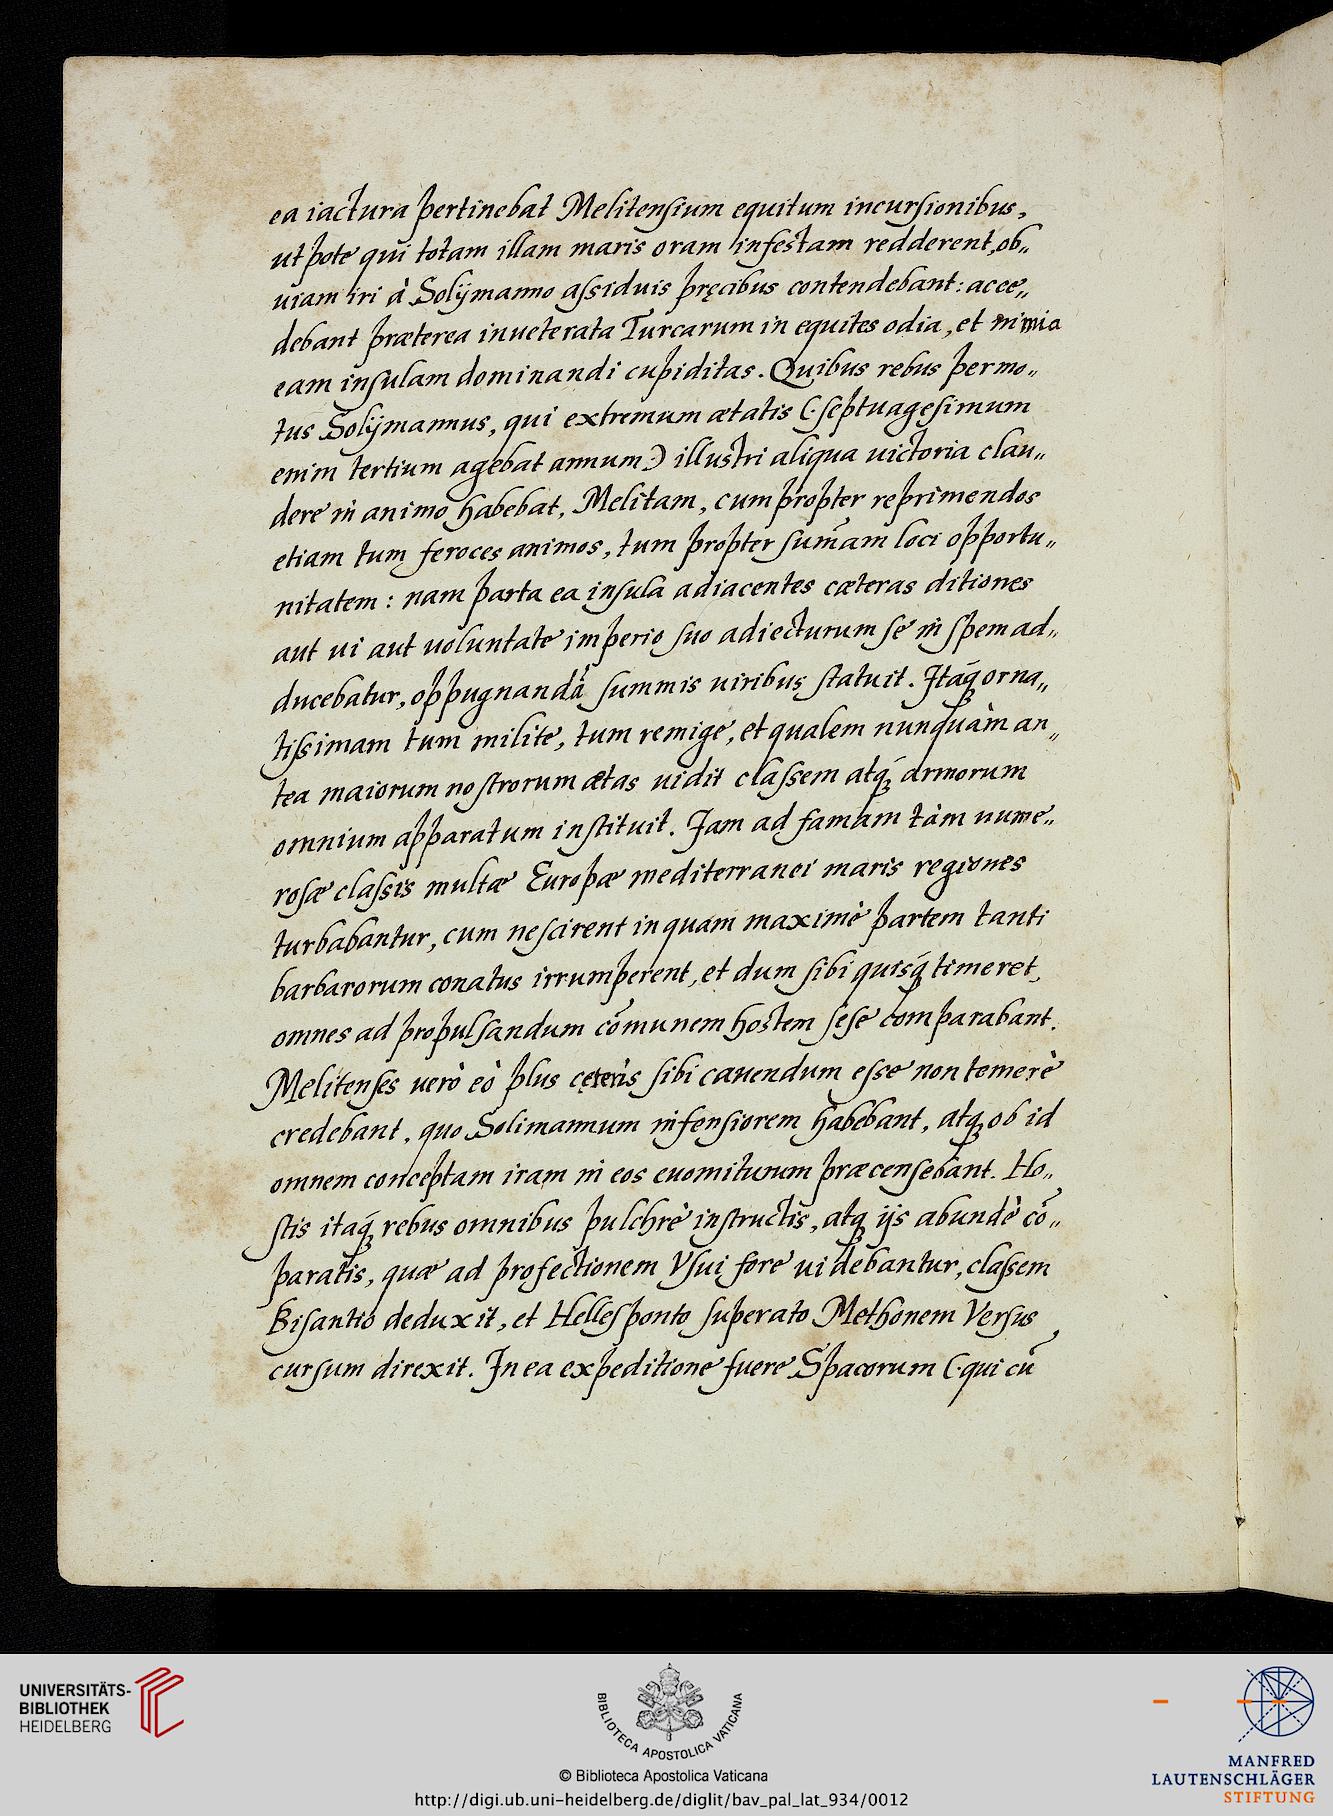 ea iactura pertinebat Melitensium equitum incursionibus,
utpote qui totam illam maris oram infestam redderent, ob„
uiam iri à Solÿmanno assiduis pręcibus contendebant: acce„
debant præterea inueterata Turcarum in equites odia, et nimia
eam insulam dominandi cupiditas. Quibus rebus permo„
tus Solÿmannus, qui extremum ætatis (septuagesimum
enim tertium agebat annum) illustri aliqua uictoria clau„
dere in animo habebat, Melitam, cum propter reprimendos
etiam tum feroces animos, tum propter sum̃am loci opportu„
nitatem: nam parta ea insula adiacentes cæteras ditiones
aut ui aut uoluntate imperio suo adiecturum se in spem ad„
ducebatur, oppugnandã summis uiribus statuit. Itaq́ orna„
tissimam tum milite, tum remige, et qualem nunquàm an„
tea maiorum nostrorum ætas uidit classem atq́ armorum
omnium apparatum instituit. Iam ad famam tàm nume„
rosæ classis multæ Europæ mediterranei maris regiones
turbabantur, cum nescirent in quam maximè partem tanti
barbarorum conatus irrumperent, et dum sibi quisq́ timeret,
omnes ad propulsandum cõmunem hostem sese comparabant.
Melitenses uerò eò plus ceteris sibi cauendum esse non temerè
credebant, quo Solimannum infensiorem habebant, atq ob id
omnem conceptam iram in eos euomiturum præcensebant. Ho„
stis itaq́ rebus omnibus pulchrè instructis, atq ijs abundè cõ„
paratis, quæ ad profectionem Vsui fore uidebantur, classem
Bisantio deduxit, et Hellesponto superato Methonem Versus
cursum direxit. In ea expeditione fuere Spacorum (qui cũ
UNIVERSITÄTS-
BIBLIOTHEK
HEIDELBERG
BIBLIOTECA APOSTOLICA VATICANA
© Biblioteca Apostolica Vaticana
http://digi.ub.uni-heidelberg.de/diglit/bav_pal_lat_934/0012
MANFRED
LAUTENSCHLÄGER
STIFTUNG